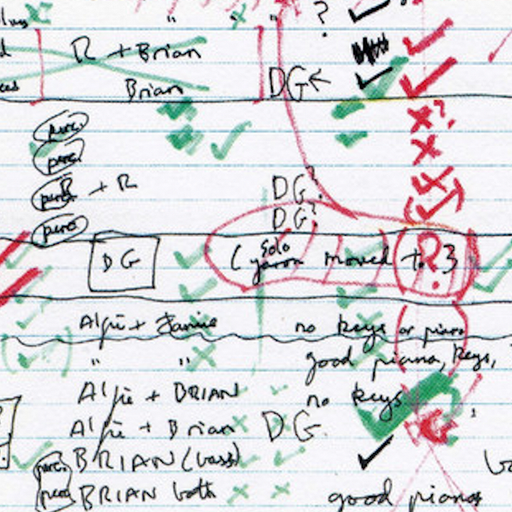 " " ?
R + Brian
Brian DG←
perc
perc ?
perc + R DG?
perc DG?
DG (solo moved to ? 3
Alfie + no keys or piano
" " good piano, keys,
Alfie + BRIAN no keys
Alfie + Brian DG.
perc BRIAN (bass)
perc BRIAN both good piano